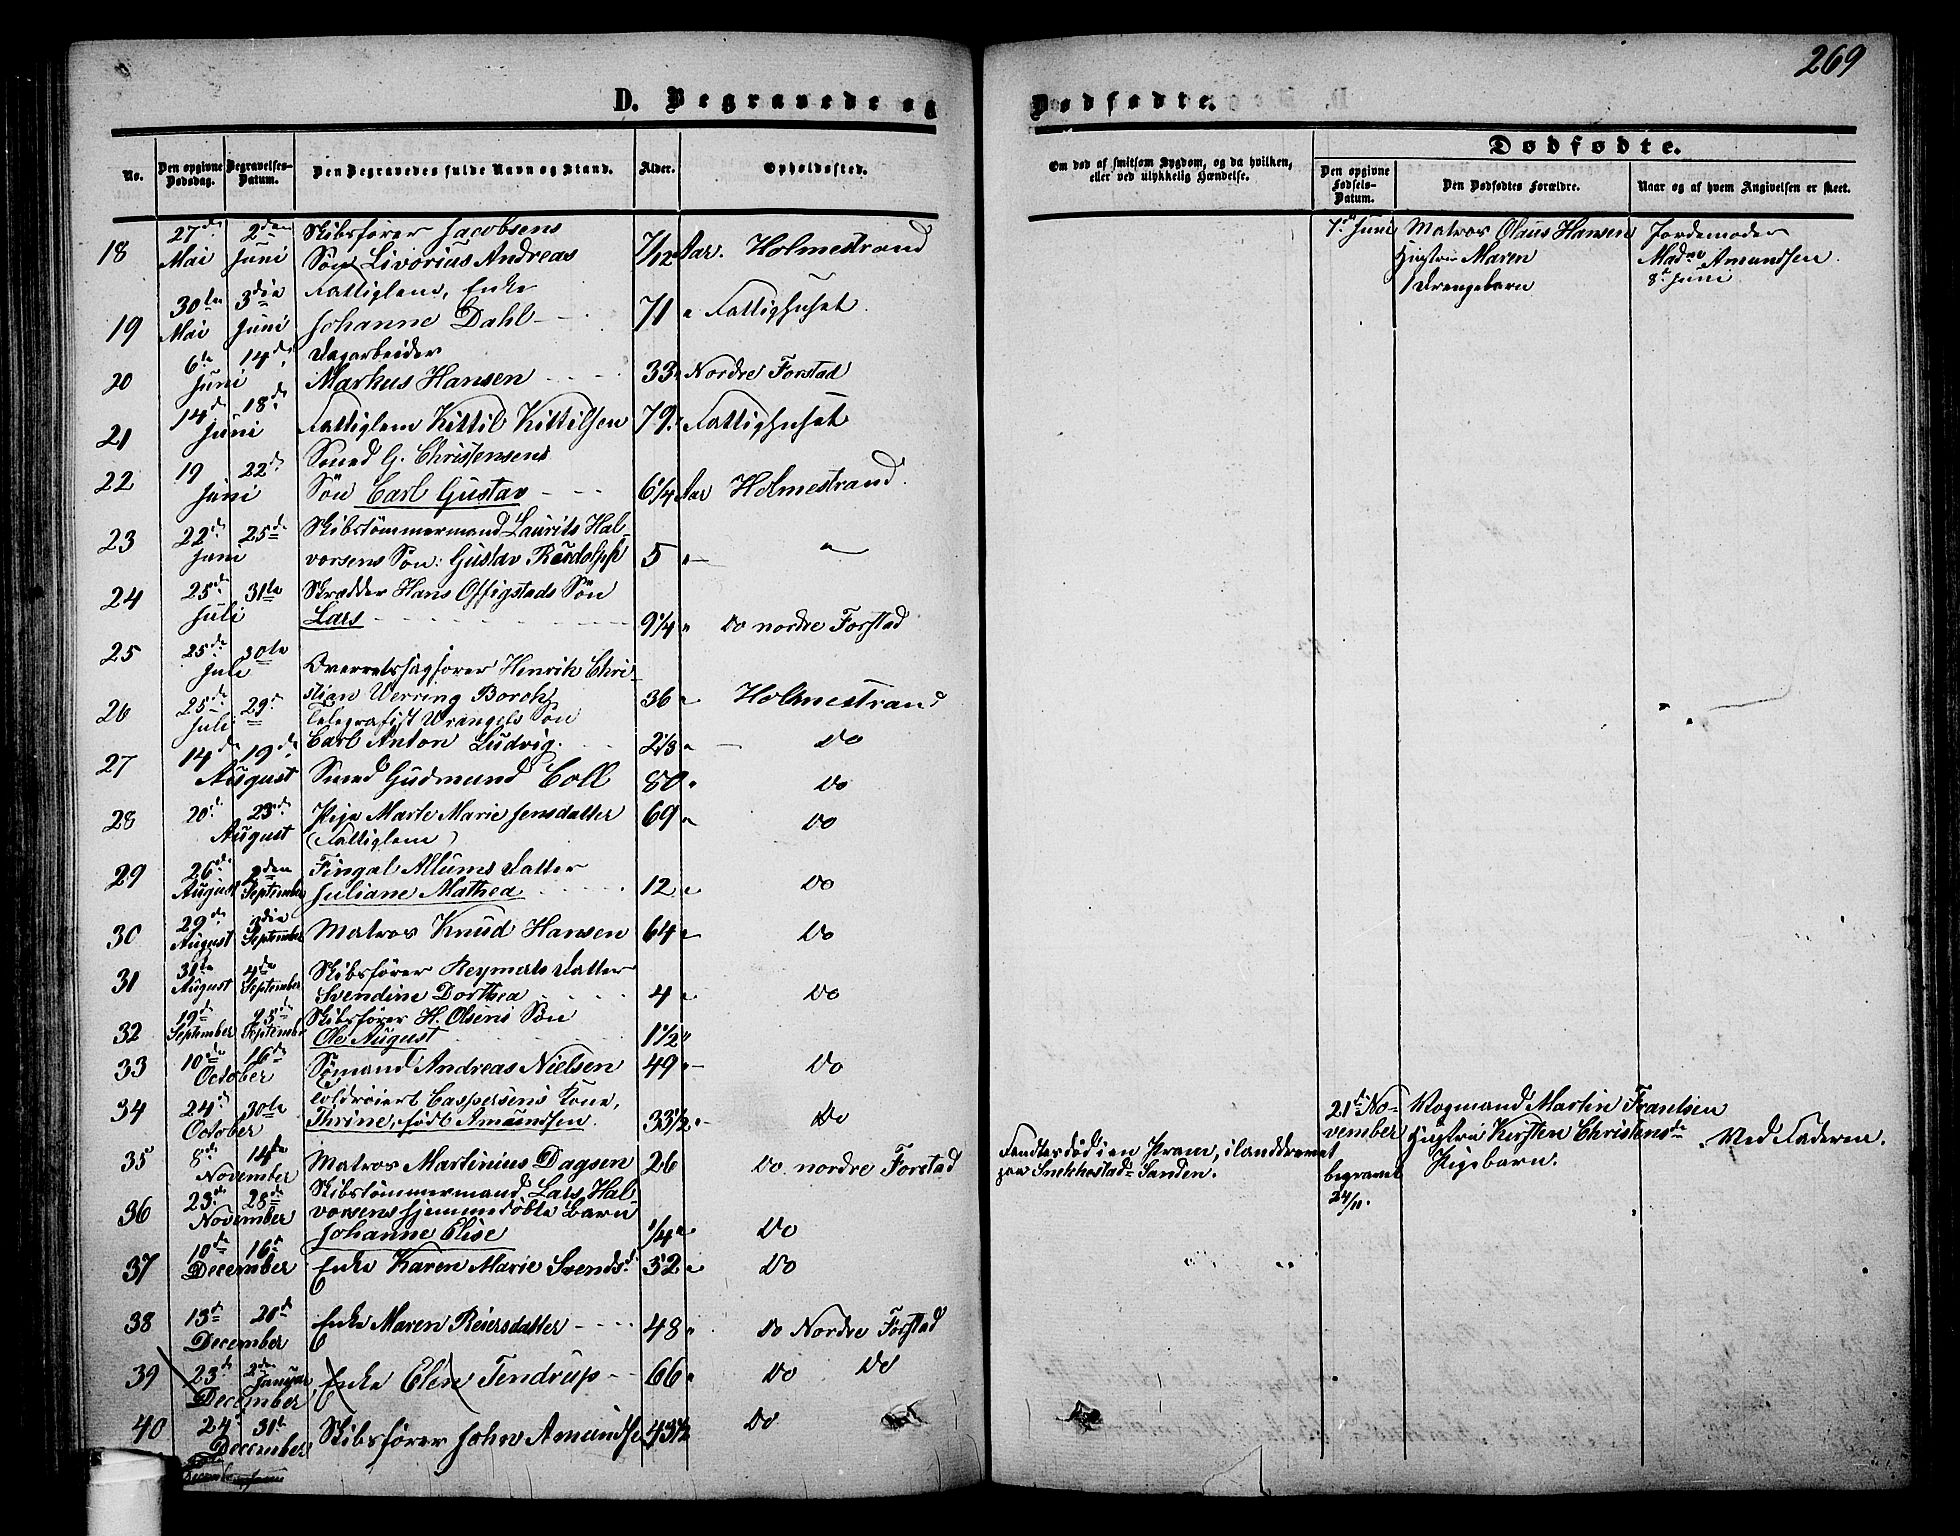 269
D. Begravede og Dødfødte.
Dødfødte.
No.
Den opgivne Dødsdag.
Begravelses-Datum.
Den Begravedes fulde Navn og Stand.
Alder.
Opholdssted.
Om død af smitsom Sygdom, og da hvilken,
eller ved ulykkelig Hændelse.
Den opgivne Fødsels-Datum.
Den Dødfødtes Forældre.
Naar og af hvem Angivelsen er skeet.
18 27de Mai 2den Juni Skibsfører Jacobsens
Søn Livorius Andreas 7/12 Aar. Holmestrand
19 30te Mai 3die Juni Fattiglem, Enke
Johanne Dahl 71 " Fattighuset.
20 6te Juni 14de Dagarbeider
Markus Hansen 33 " Nordre Forstad
21 14de Juni 18de Fattiglem Kittil Kittilsen 79 " Fattighuset
22 19 Juni 22de Smed G. Christensens
Søn Carl Gustav 6 1/4 Aar Holmestrand.
23 22de Juni 25de Skibstömmermand Laurits Hal-
vorsens Søn: Gustav Rudolph 5 " "
24 25de Juli 31te Skrædder Hans Offigstads Søn
Lars 9 1/4 " Do nordre Forstad
25 25de Juli 30te Overretssagfører Henrik Chri-
stian Werring Borch 36 " Holmestrand
26 25de Juli 29de Telegrafist Wrangels Søn
Carl Anton Ludvig. 2 1/3 " Do
27 14de August 19de Smed Gudmund Coll 80 " Do
28 20de August 23de Pige Marte Marie Jensdatter 69 " Do
(Fattiglem)
29 26de August 2den September Fingal Allums Datter
Juliane Mathea 12 " Do
30 29de August 3die September Matros Knud Hansen 64 " Do
31 31te August 4de September Skibsfører Reymerts Datter
Svendine Dorthea 4 " Do
32 19de September 25de September Skibsfører H. Olsens Søn
Ole August 1 1/2 "
33 10de October 16de Sømand Andreas Nielsen 49 " Do
34 24de October 30te Toldroiert Caspersens Kone,
Thrine, født Amundsen. 33 1/2 " Do
35 8de November 14de Matros Martinius Dagsen 26 Do nordre Forstad
36 23de November 28de Skibstömmermand Lars Hal-
vorsens hjemmedøbte Barn
Johanne Elise 1/4 " Do
37 10de December 16de Enke Karen Marie Svendsd. 52 " Do
38 13de December 20de Enke Maren Reiersdatter 48 " Do Nordre Forstad
39 23de December 2den Januar Enke Elise Tendrup 66 " Do Do
40 24de December 31te Skibsfører John Amundse 43 1/2 Do
7de Juni Matros Olaus Hansen
Hustru Maren
Drengebarn
Jordemoder
Madme Amundsen.
8de Juni
Fandtes død i en Pram, ilanddrevet
paa Snekkestad-Sanden.
21de No-
vember
begravet
24/11.
Vogmand Martin Frantsen
Hustru Kirsten Christensdr
Pigebarn.
Ved Faderen.